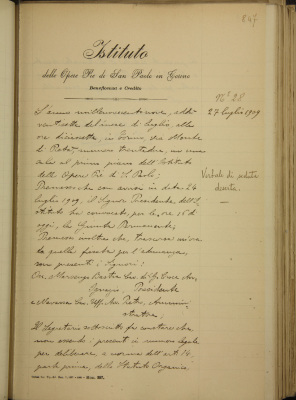 847
Istituto
delle Opere Pie di San Paolo in Torino
Beneficenza e Credito
N° 28
27 luglio 1909
L'anno millenovecentonove, addì
ventisette del mese di luglio alle
ore diciassette, in Torino, via Monte
di Pietà, numero trentadue, in una
sala al primo piano dell'Istituto
delle Opere Pie di S. Paolo;
Verbale di seduta
deserta.
Premesso che con avviso in data 24
luglio 1909, il Signor Presidente dell'I
stituto ha convocato, per le ore 16 di
oggi, la Giunta Permanente,
Premesso inoltre che, trascorsa un'ora
da quella fissata per l'adunanza,
sono presenti i Signori:
Presidente
e Ravenna Cav. Uff. Avv. Pietro, Ammini-
stratore.
Il Segretario sottoscritto fa constare che
non essendo i presenti in numero legale
per deliberare, a norma dell'art. 16,
parte prima, dello Statuto Organico